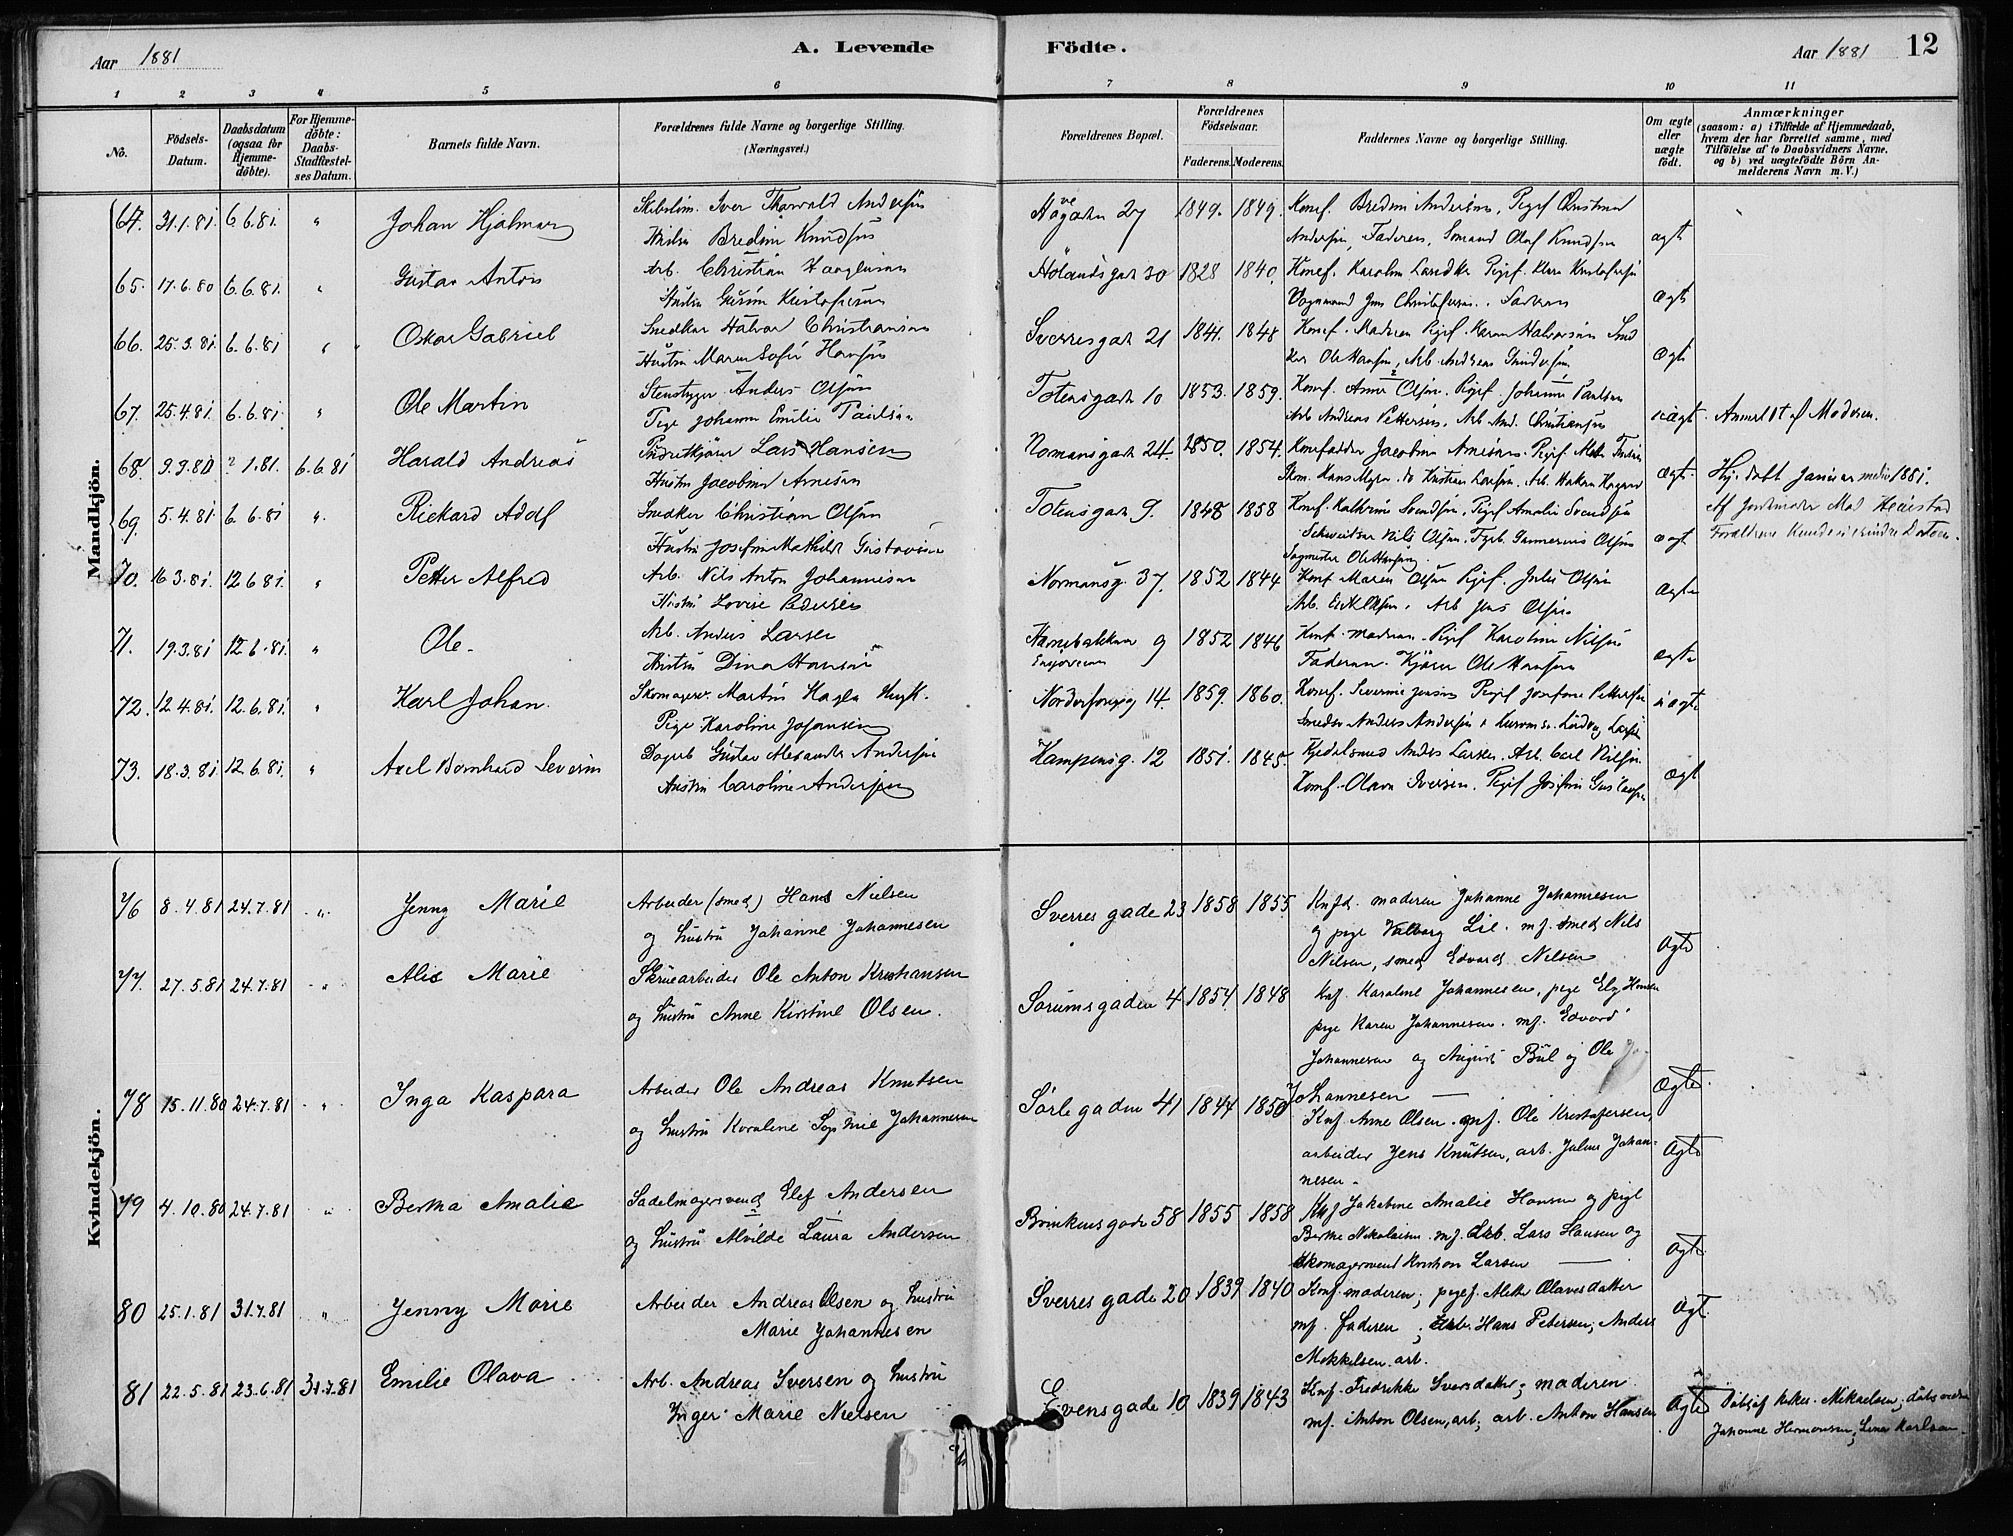 Aar 1881
A. Levende
Födte.
Aar 1881
12
1 2 3 4 5 6 7 8 9 10 11
No.
Födsels-
Datum.
Daabsdatum
(ogsaa for
Hjemme-
döbte).
For Hjemme-
döbte:
Daabs-
Stadfæstel-
ses Datum.
Barnets fulde Navn.
Forældrenes fulde Navne og borgerlige Stilling.
(Næringsvei.)
Forældrenes Bopæl.
Forældrenes
Födselsaar.
Faderens. Moderens.
Faddernes Navne og borgerlige Stilling.
Om ægte
eller
uægte
födt.
Anmærkninger
(saasom: a) i Tilfælde af Hjemmedaab,
hvem der har forrettet samme, med
Tilföielse af to Daabsvidners Navne,
og b) ved uægtefödte Börn An-
melderens Navn m. V.)
Mandkjön.
64. 31.1.81. 6.6.81. " Johan Hjalmar
Iver Thorvald Andersen
Hustru Bredine Knudsen
27 1849. 1849.
Konef. Bredine Andersen, Pigef Christine
Andersen, Faderen, Sømand Olaf Knudsen
ægt
65. 17.6.80 6.6.81. " Gustav Anton
Arb. Christian
Hustru
Hölandsgade 30 1828 1840.
Konef. Karoline
Vognmand Jens Christofersen.
Ægt
66. 25.3.81. 6.6.81 " Oskar Gabriel
Snedker Halvor Christiansen
Hustru Maren Sofie Hansen
Sverresgade 21 1841. 1848
Konef. Moderen Pigef. Karen Halvorsen Sned
ker Ole Hansen, Arb. Andreas
Ægt
67. 25.4.81. 6.6.81. " Ole Martin
Anders Olsen
Pige Johanne Emilie Paulsen
Totensgade 10 1853. 1859.
Konef. Anne Olsen. Pigef. Johanne Paulsen
Arb Andreas Pettersen, Arb And. Christiansen
uægt. Anmeldt af Moderen.
68. 9.9.80 ? 1.81. 6.6.81 Harald Andreas
Lars Hansen
Hustru Jacobine Arnesen
Normansgade 24. 1850. 1854.
Konefadder Jacobine Arnesen. Pigef
Hans Myren. Kristian Larsen, Arb. Hakon
ægt. Hj. døbt Januar 1881.
Af Jordmoder
69. 5.4.81. 6.6.81 " Rickard Adolf
Snedker Christian Olsen
Hustru Josefine Mathilde Gustavsen
Totensgade 9. 1848 1858
Konef. Kathrine Svendsen, Pigef Amalie Svendsen
Nils Olsen. Olsen
Ole Hansen.
ægt
70. 16.3.81. 12.6.81. " Petter Alfred
Arb. Nils Anton Johannesen
Hustru Lovise Pedersen
Normansg. 37. 1852 1844
Konef Maren Olsen Pigef. Julie Olsen
Arb. Olsen. Arb Jens Olsen
Ægte
71. 19.3.81 12.6.81. " Ole.
Arb. Anders Larsen
Hustru Dina Hansen
9 1852 1846
Konef. moderen. Pigef Karoline Nilsen
Faderen. Kjører Ole Hansen
ægte
72. 12.4.81. 12.6.81. " Karl Johan.
Skomagersv. Martin
Pige Karoline Johansen
14. 1859. 1860.
Konef. Severine Jensen Pigef Josefine Pettersen
Anders Andersen
uægte
73. 18.3.81 12.6.81. " Axel Bernhard Severin
Gustav Alexander Andersen
Hustru Caroline Andersen
Kampensg. 12 1851. 1845.
Anders Larsen. Arb. Carl Nilsen
Konef. Olava Iversen. Pigef Josefine Gustavsen
Ægt
Kvindekjön.
76 8.4.81 24.7.81 " Jenny Marie
Arbeider (smed) Hans Nielsen
og hustru Johanne Johannesen
Sverres gade 23 1858 1855
Knfd. moderen Johanne Johannesen
og pige Valborg Lie. mf. smed Nils
Nilsen, smed Edvard Nilsen
Ægte
77. 27.5.81 24.7.81 " Alis Marie
Skruearbeider Ole Anton Kristiansen
og hustru Anne Kirstine Olsen.
Sørumsgaden 4 1854 1848
Knf. Karoline Johannesen, pige Elg Hansen
pige Karen Johannesen. mf. Edvard
Johannesen og August Bül og Ole
Johannesen —
Ægte.
78 15.11.80 24.7.81 " Inga Kaspara
Arbeider Ole Andreas Knutsen
og hustru Karoline Sophie Johannesen
Sørle gaden 41 1844 1850
Knf. Anne Olsen. mf. Ole Kristofersen,
arbeider Jens Knutsen, arb. Julius Johan-
nesen.
Ægte
79 4.10.80 24.7.81 " Bertha Amalie
Sadelmagersvend Elef Andersen
og hustru Alvilde Laura Andersen
Brinkens gade 58 1855 1858
Knf Jakobine Amalie Hansen og pige
Berthe Nikolaisen. mf. Arb. Lars Hansen og
Skomagersvend Kristian Larsen —
Ægte
80 25.1.81 31.7.81 " Jenny Marie
Arbeider Andreas Olsen og hustru
Marie Johannesen
Sverres gade 20 1839 1840
Konf. moderen; pigef. Alette Olavesdatter
mf. faderen; arb. Hans Petersen; Anders
Mekkelsen. arb.
Ægt.
81 22.5.81 23.6.81 31.7.81 Emilie Olava
Arb. Andreas Iversen og hustru
Inger Marie Nielsen
Evensgade 10 1839 1843
Knf. Fredrikke Iversdatter; moderen
mf. Anton Olsen, arb; arb. Anton Hansen
Ægte Mikaelsen;
Johanne Hermansen; Lina Karlsen.